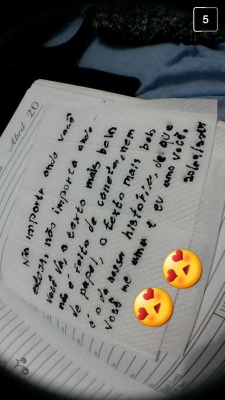 5
Abril 20
Não importa onde você
esteja, não importa onde
você vá, o texto mais belo
não é feito de caneta, nem
de papel, o texto mais belo
é o da nossa história, de que
você me ama e eu amo você.